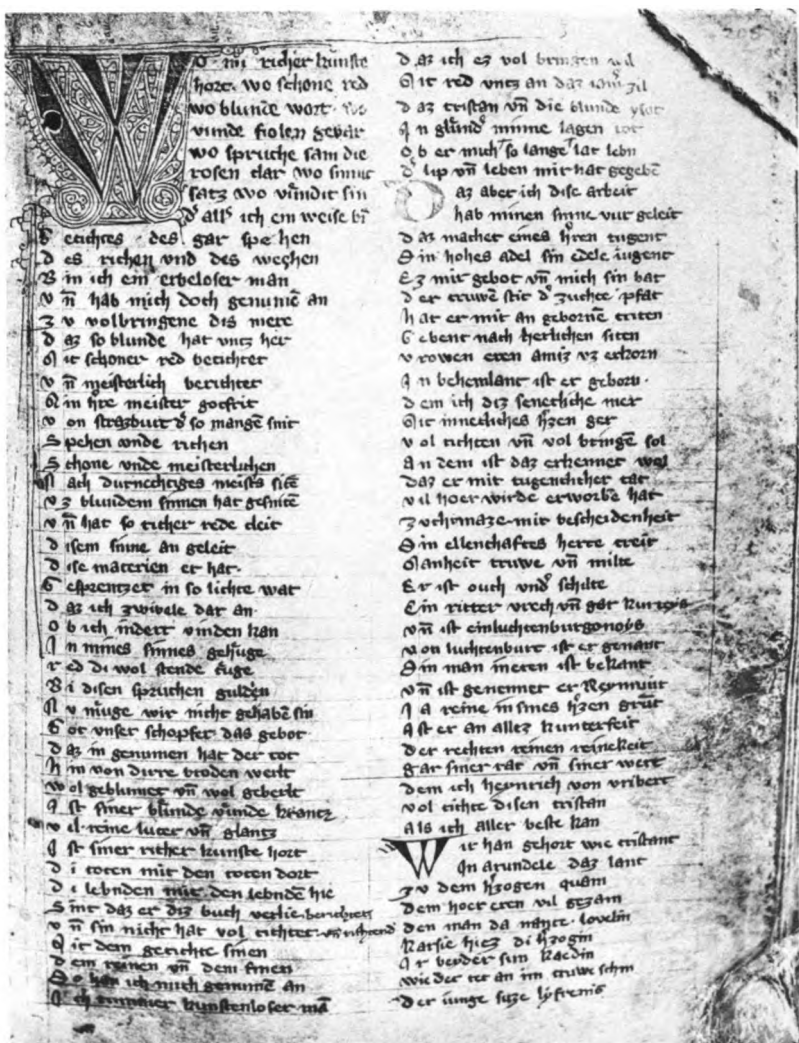 208
Wo. mir richer kunste
hort. wo schone red
wo blunde wort. wo
vunde fiolen gevar
wo spruche sam die
rosen clar wo sinnic
satz wo vundic sin
d' all' ich ein weise bi
Getichtes. des gar spehen
des richen vnd des wechen
Bin ich ein erbeloser man
vn̄ hab mich doch genumē an
zv volbringene dis mere
daz so blunde hat vntz her
Mit schoner red berichtet
vn̄ meisterlich berichtet
Min hre meister gotfrit
von strazburc d' so mangē snit
Spehen vnde richen
Schone vnde meisterlichen
Nach durnechtiges meist's sitē
vz blundem sinnen hat gesnitē
vn̄ hat so richer rede cleit
disem sinne an geleit
dise materien er hat.
Gesprentzet in so lichte wat
daz ich zwivele dar an.
ob ich indert vinden kan
In mines sinnes gefuge
red di wol stende fuge
Bi disen spruchen gulden
Nv muge wir nicht gehabē sin
Got vnser schopfer das gebot
daz in genumen hat der tot
Hin von dirre broden werlt
wol geblumet vn̄ wol geberlt
Ist siner blunde vunde krantz
vil reine luter vn̄ glantz
Ist siner richer kunste hort
di toten mit den toten dort
di lebnden mit den lebndē hie
Sint daz er diz buch verlie berichtet
vn̄ sin nicht hat vol tichtet vn̄ richtend
Mit dem getichte sinen
dem reinen vn̄ dem finen
So han ich mich genumē an
Ich tummer kunstenloser mā
daz ich ez vol bringen wil
Mit red vntz an daz iam' zil
daz tristan vn̄ die blunde ysot
In glund' minne lagen tot
ob er mich so lange lat lebn
d' lip vn̄ leben mir hat gegebē
Daz aber ich dise arbeit
hab minen sinne vur geleit
daz machet eines h'ren tugent
Sin hohes adel sin edele iugent
Ez mir gebot vn̄ mich sin bat
der truwē stic d' zuchte pfat
hat er mit an gebornē triten
Gebent nach herlichen siten
vrowen eren amiz vz erkorn
In behemlant ist er geborn.
dem ich diz senetliche mer
Mit innecliches h'zen ger
vol tichten vn̄ vol bringē sol
an dem ist daz erkennet wol
daz er mit tugentlicher tat
vil hoer wirde erworbē hat
zuchtmaze mit bescheidenheit
Sin ellenthaftes herce treit
Manheit truwe vn̄ milte
Er ist ouch vnd' schilte
Ein ritter vrech vn̄ gar kurtoys
vn̄ ist ein luchtenburgonoys
von luchtenburc ist er genant
Sin man ineren ist bekant
vn̄ ist genennet er Reymunt
Ia reine in sines h'zen grūt
Ist er an allez kunterfeit
der rechten reinen reinekeit
gar siner tat vn̄ siner wort
dem ich heynrich von vribert
vol tichte disen tristan
als ich aller beste kan
Wir han gehort wie tristant
In arundele daz lant
zv dem h'zogen quam
dem hoer eren vil gezam
den man da nante. lovelin
karsie hiez di h'zogin
Ir beyder sun kaedin
wie der tet an im truwe schin
der iunge suze lyfrenis